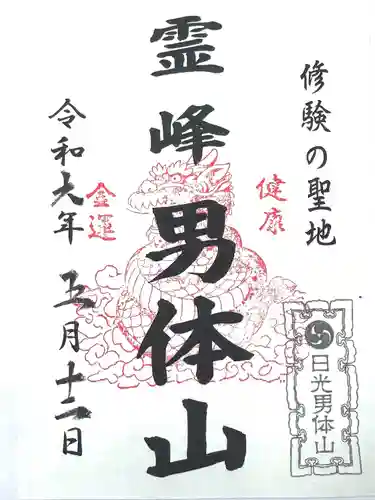 修験の聖地
健康
日光男体山
霊峰男体山
金運
令和六年五月十二日